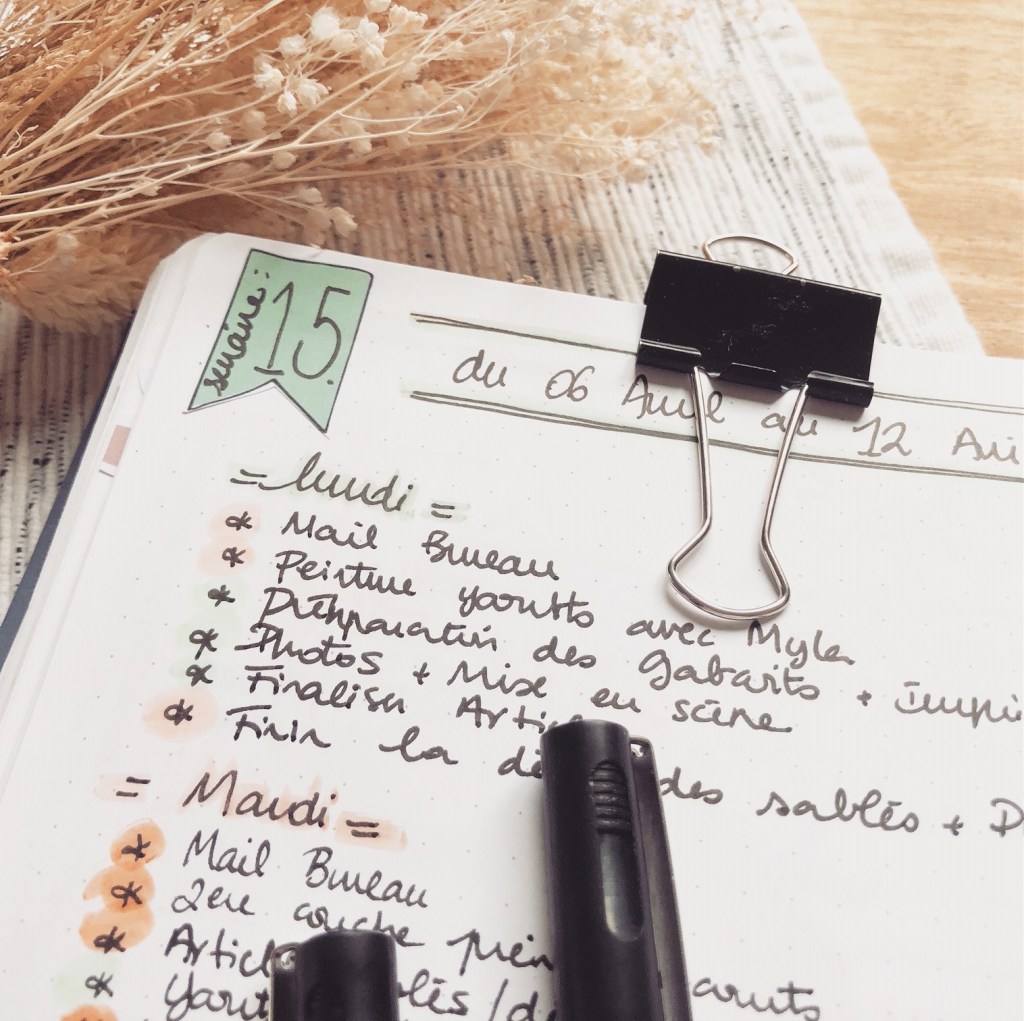 semaine: 15.
du 06 Avril au 12 Avri
= lundi =
* Mail Bureau
* Peinture yaourts avec Myla
* Préparation des gabarits + Impri
* Photos + Mise en scène
* Finaliser Artic
* Finir la dé des sablés + D
= Mardi =
* Mail Bureau
* 2ère couche pein
* Articl
* Yaourt lés / d aruts